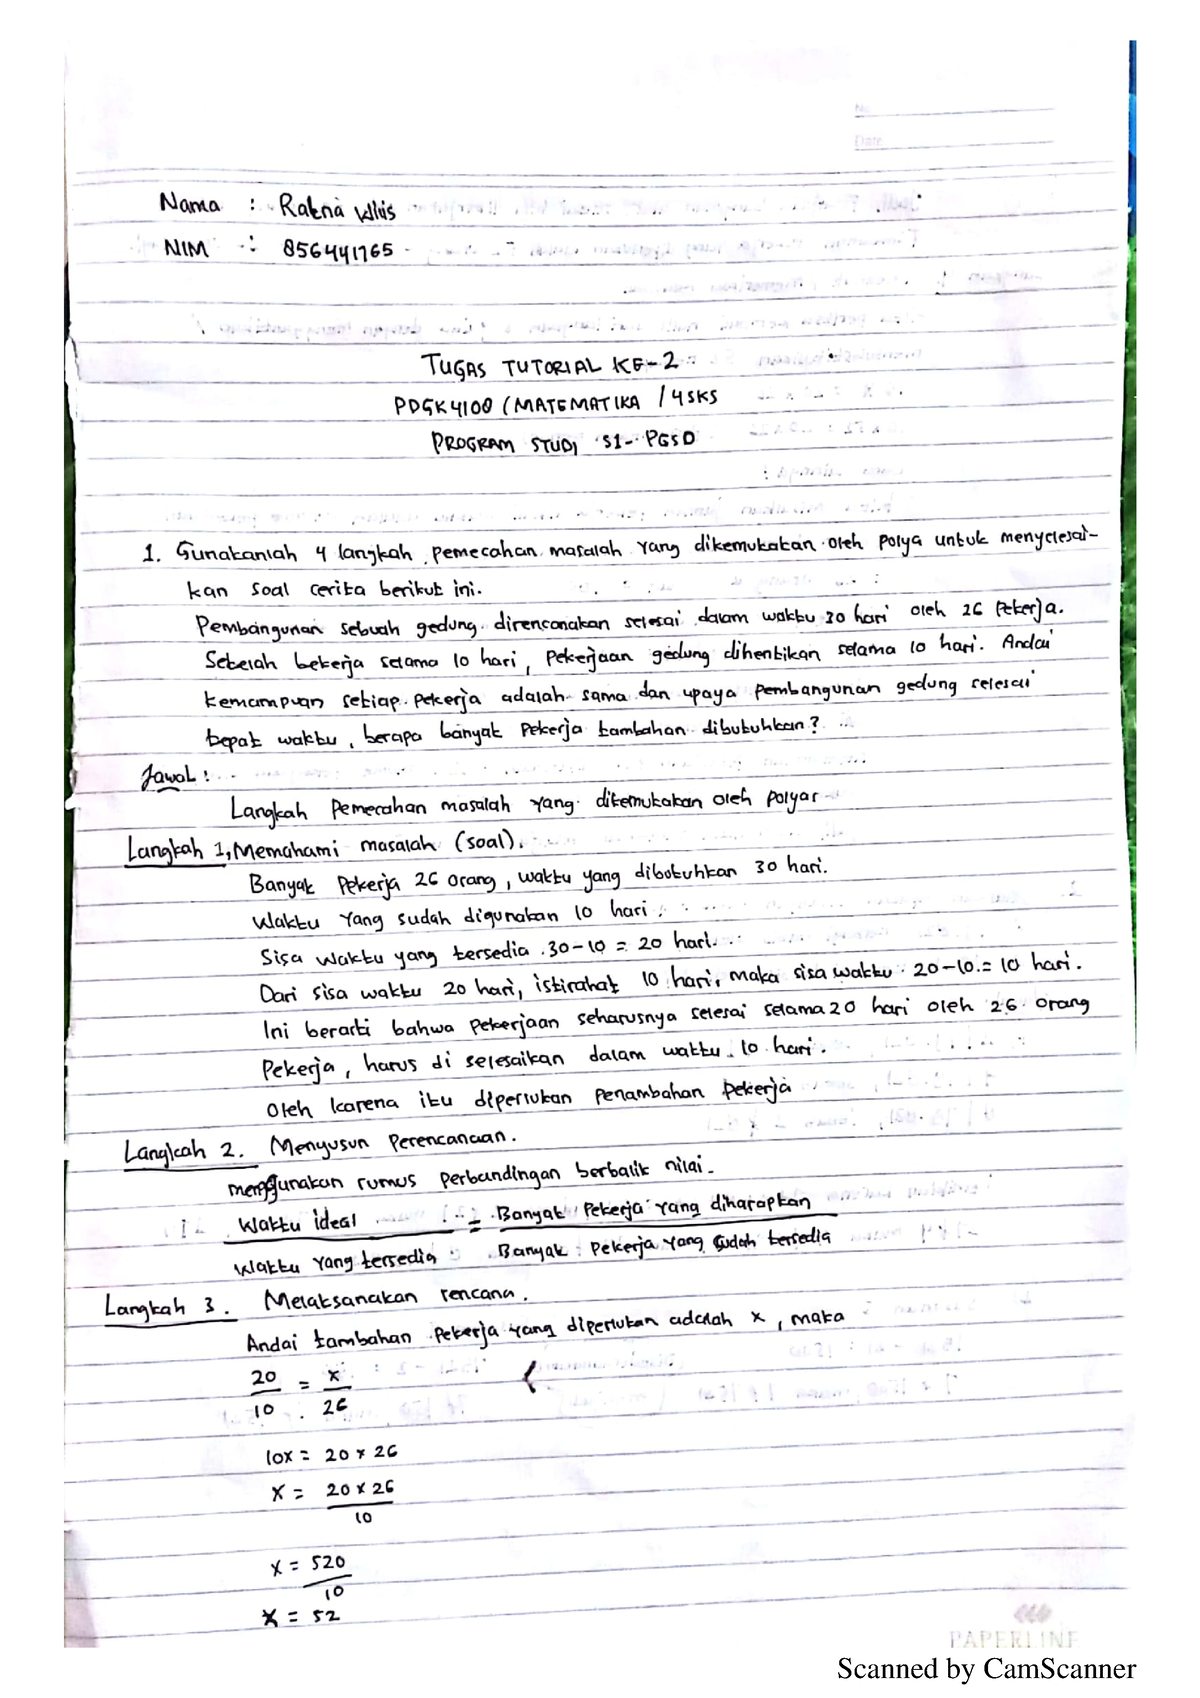 No
Date
Nama : Ratna Wilis
NIM : 856441765
TUGAS TUTORIAL KE-2
PDGK4108 (MATEMATIKA / 4SKS
PROGRAM STUDI S1- PGSD
1. Gunakanlah 4 langkah pemecahan masalah yang dikemukakan oleh polya untuk menyelesai-
kan soal cerita berikut ini.
Pembangunan sebuah gedung direncanakan selesai dalam waktu 30 hari oleh 26 Pekerja.
Setelah bekerja selama 10 hari, Pekerjaan gedung dihentikan selama 10 hari. Andai
kemampuan setiap pekerja adalah sama dan upaya pembangunan gedung selesai
tepat waktu, berapa banyak Pekerja tambahan dibutuhkan?
Jawab :
Langkah Pemecahan masalah yang dikemukakan oleh polyar
Langkah 1, Memahami masalah (soal).
Banyak Pekerja 26 orang, waktu yang dibutuhkan 30 hari.
Waktu Yang sudah digunakan 10 hari
Sisa waktu yang tersedia 30-10 = 20 hari.
Dari sisa waktu 20 hari, istirahat 10 hari, maka sisa waktu 20-10 = 10 hari.
Ini berarti bahwa Pekerjaan seharusnya selesai selama 20 hari oleh 26 orang
Pekerja, harus di selesaikan dalam waktu 10 hari.
Oleh karena itu diperlukan Penambahan Pekerja
Langkah 2. Menyusun Perencanaan.
menggunakan rumus perbandingan berbalik nilai.
Waktu ideal = Banyak Pekerja yang diharapkan
Waktu Yang tersedia Banyak Pekerja yang sudah tersedia
Langkah 3. Melaksanakan rencana.
Andai tambahan Pekerja yang diperlukan adalah x, maka
20 = x
10 26
10x = 20 x 26
x = 20 x 26
10
x = 520
10
x = 52
PAPERLINE
Scanned by CamScanner